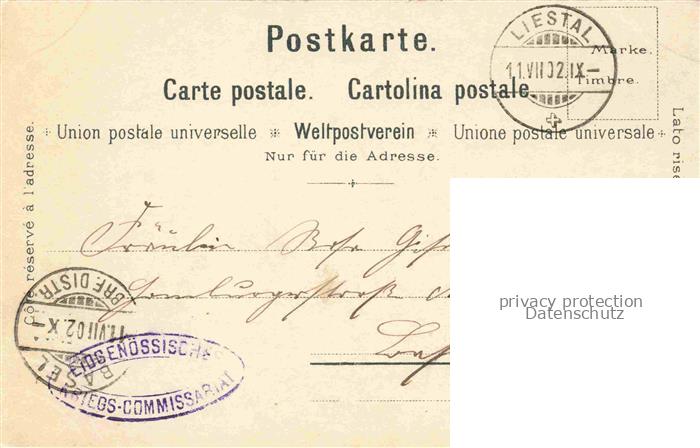 Postkarte.
LIESTAL
11.VII.02.IX–
Marke.
Timbre.
Carte postale. Cartolina postale
Union postale universelle ※ Weltpostverein ※ Unione postale universale
Nur für die Adresse.
Côté réservé à l'adresse.
Lato rise
Fräulein Rosa
Homburgerstraße
privacy protection
Datenschutz
BASEL BRF. DISTR.
11.VII.02.X–
EIDGENÖSSISCHES
KRIEGS-COMMISSARIAT